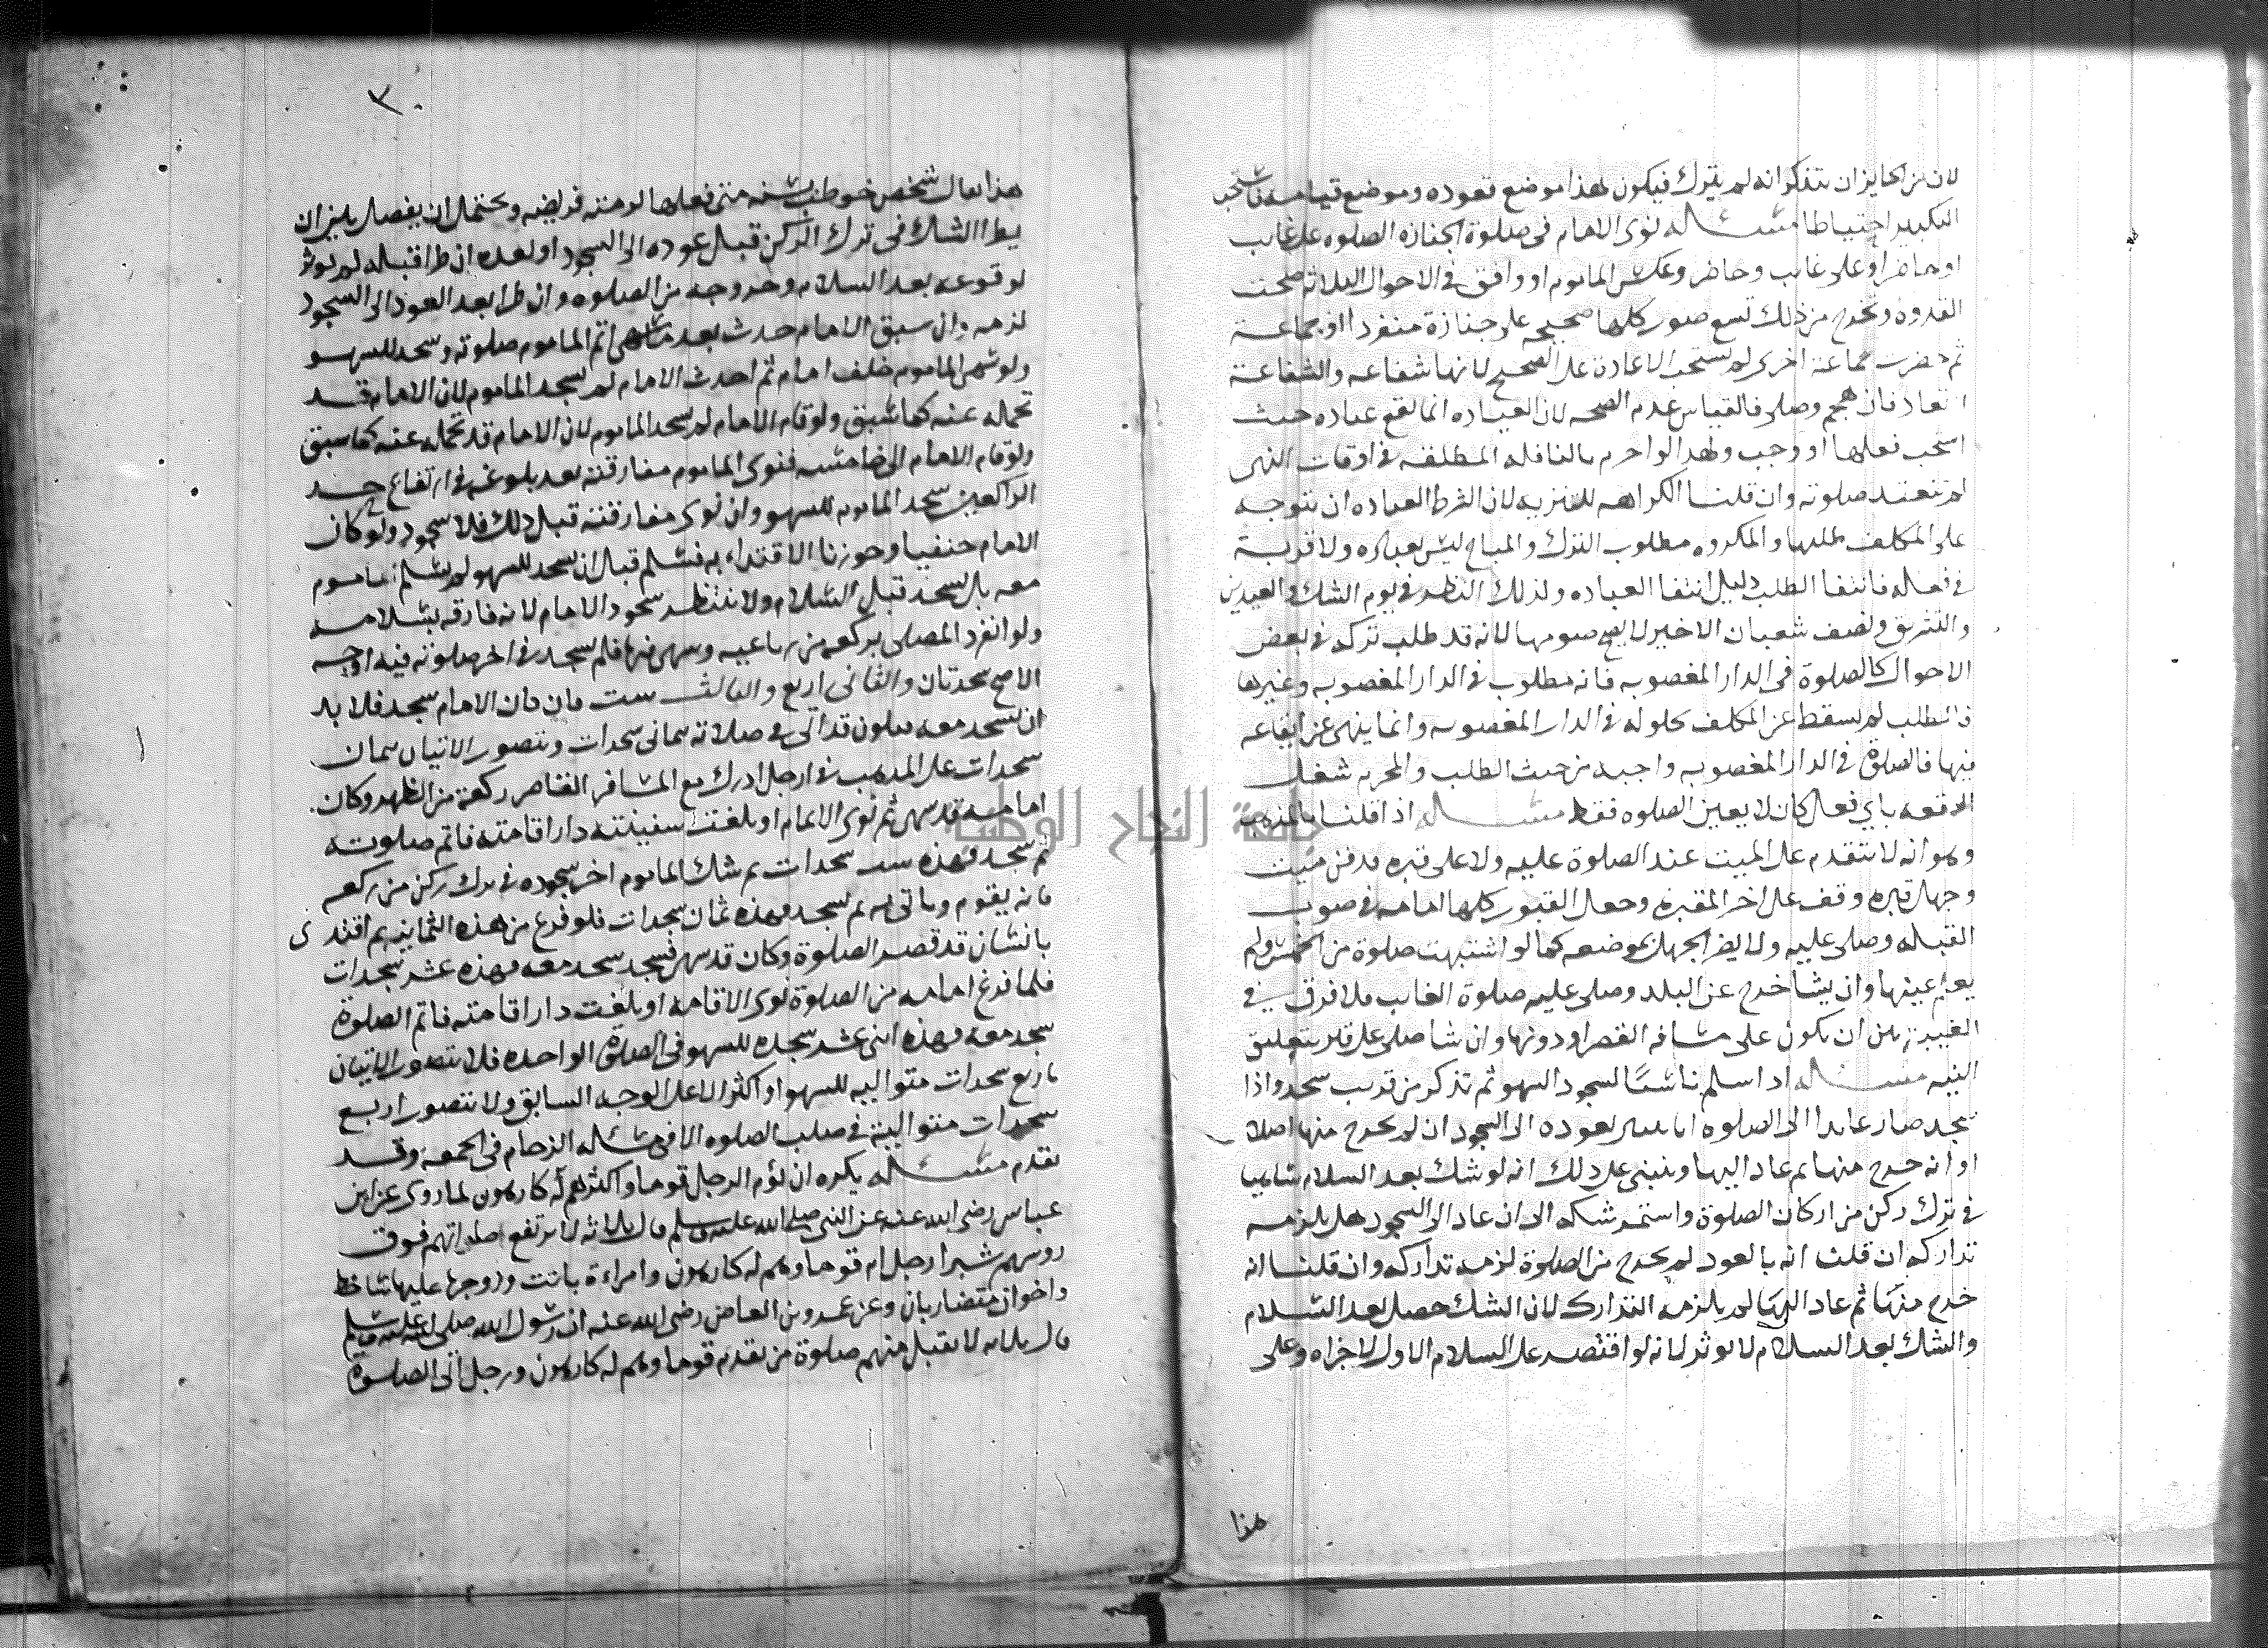 لان من الجايز ان يتذكر انه لم يترك فيكون هذا موضع قعوده وموضع قيامه فاستحب
التكبير احتياطا مسئله نوى الامام في صلوة الجنازه الصلوه على غايب
او حاضر او على غايب وحاضر وعكس الماموم او وافق في الاحوال الثلاثه صحت
القدوه ويخرج من ذلك تسع صور كلها صحيحه على جنازة منفردا او جماعة
ثم حضرت جماعة اخرى لم يستحب الاعادة على الصحيح لانها شفاعه والشفاعة
لا تعاد فان هجم وصلى فالقياس عدم الصحه لان العباده انما تقع عباده حيث
استحب فعلها او وجب ولهذا لو احرم بالنافله المطلقه في اوقات النهى
لم تنعقد صلوته وان قلنا الكراهه للتنزيه لان الشرط العباده ان يتوجه
على المكلف طلبها والمكروه مطلوب الترك والمباح ليس بعباده ولا قربة
في فعله فانتفا الطلب دليل انتفا العباده ولذلك النظر في يوم الشك والعيدين
والتشريق ونصف شعبان الاخير لا يصح صومها لانه قد طلب تركه في بعض
الاحوال كالصلوة في الدار المغصوبه فانه مطلوب في الدار المغصوبه وغيرها
فالطلب لم يسقط عن المكلف بحلوله في الدار المغصوبه وانما ينهى عن ايقاعه
فيها فالصلوة في الدار المغصوبه واجبه من حيث الطلب والمحرم شغل
البقعه باي فعل كان لا بعين الصلوه فقط مسئله اذا قلنا بالمذهب
وهو انه لا يتقدم على الميت عند الصلوة عليه ولا على قبره فدفن ميت
وجهل قبره وقف على اخر المقبرة وجعل القبور كلها امامه في صوب
القبله وصلى عليه ولا يضر الجهل بموضعه كما لو اشتبهت صلوة من الخمس ولم
يعلم عينها وان يشا خرج عن البلد وصلى عليه صلوة الغايب فلا فرق في
الغيبة بين ان يكون على مسافه القصر او دونها وان شا صلى على قبر بتعليق
النيه مسئله اذا سلم ناسيًا لسجود السهو ثم تذكر من قريب سجد واذا
سجد صار عايدا الى الصلوه اما بعوده الى السجود ان لم يخرج منها اصلا
او انه خرج منها ثم عاد اليها وينبنى على ذلك انه لو شك بعد السلام ناسيا
في ترك ركن من اركان الصلوة واستمر شكه الى ان عاد الى السجود هل يلزمه
تداركه ان قلنا انه بالعود لم يخرج من الصلوة لزمه تداركه وان قلنا انه
خرج منها ثم عاد اليها لم يلزمه التدارك لان الشك حصل بعد السلام
والشك بعد السلام لا يوثر لانه لو اقتصر على السلام الاول لاجزاه وعلى
هذا
٣٠
هذا يقال شخص خوطب بسنه متى فعلها لزمته فريضه ويحتمل ان يفصل بين ان
يطرا الشك في ترك الركن قبل عوده الى السجود او بعده ان طرا قبله لم يوثر
لوقوعه بعد السلام وخروجه من الصلوه وان طرا بعد العود الى السجود
لزمه وان سبق الامام حدث بعد ما سهى اتم الماموم صلوته وسجد للسهو
ولو سهى الماموم خلف امام ثم احدث الامام لم يسجد الماموم لان الامام قد
تحمله عنه كما سبق ولو قام الامام لم يسجد الماموم لان الامام قد تحمله عنه كما سبق
ولو قام الامام الى خامسه فنوى الماموم مفارقته بعد بلوغه في ارتفاع حد
الراكعين سجد الماموم للسهو وان نوى مفارقته قبل ذلك فلا سجود ولو كان
الامام حنفيا وجوزنا الاقتداء به فسلم قبل ان يسجد للسهو لم يسلم الماموم
معه بل يسجد قبل السلام ولا ينتظر سجود الامام لانه فارقه بسلامه
ولو انفرد المصلى بركعه من رباعيه وسهى فيها فلم يسجد في اخر صلوته فيه اوجه
الاصح سجدتان والثاني اربع والثالث ست فان كان الامام سجد فلا بد
ان يسجد معه فيكون قد اتى في صلاته بثمانى سجدات ويتصور الاتيان بثمان
سجدات على المذهب في رجل ادرك مع المسافر القاصر ركعة من الظهر وكان
امامه قد سهى ثم نوى الاتمام او بلغت سفينته دار اقامته فاتم صلوته
ثم سجد فهذه ست سجدات ثم شك الماموم اخر سجوده في ترك ركن من ركعه
فانه يقوم وياتى به ثم يسجد فهذه ثمان سجدات فلو فرغ من هذه الثمانيه ثم اقتدى
بانسان قد قصر الصلوة وكان قد سهى فسجد سجد معه فهذه عشر سجدات
فلما فرغ امامه من الصلوة نوى الاقامه او بلغت دار اقامته فاتم الصلوة
سجد معه فهذه اثنى عشر سجده للسهو في الصلوة الواحده فلا يتصور الاتيان
باربع سجدات متواليه للسهو او اكثر الا على الوجه السابق ولا يتصور اربع
سجدات متوالية في صلب الصلوه الا في مسئله الزحام في الجمعه وقد
تقدم مسئله يكره ان يؤم الرجل قوما واكثرهم له كارهون لما روى عن ابن
عباس رضى الله عنه عن النبى صلى الله عليه وسلم قال ثلاثه لا ترتفع صلواتهم فوق
روسهم شبرا رجل ام قوما وهم له كارهون وامراءة باتت وزوجها عليها ساخط
واخوان متضاربان وعن عمرو بن العاص رضى الله عنه ان رسول الله صلى الله عليه وسلم
قال ثلاثه لا يقبل منهم صلوة من تقدم قوما وهم له كارهون ورجل اتى الصلوة